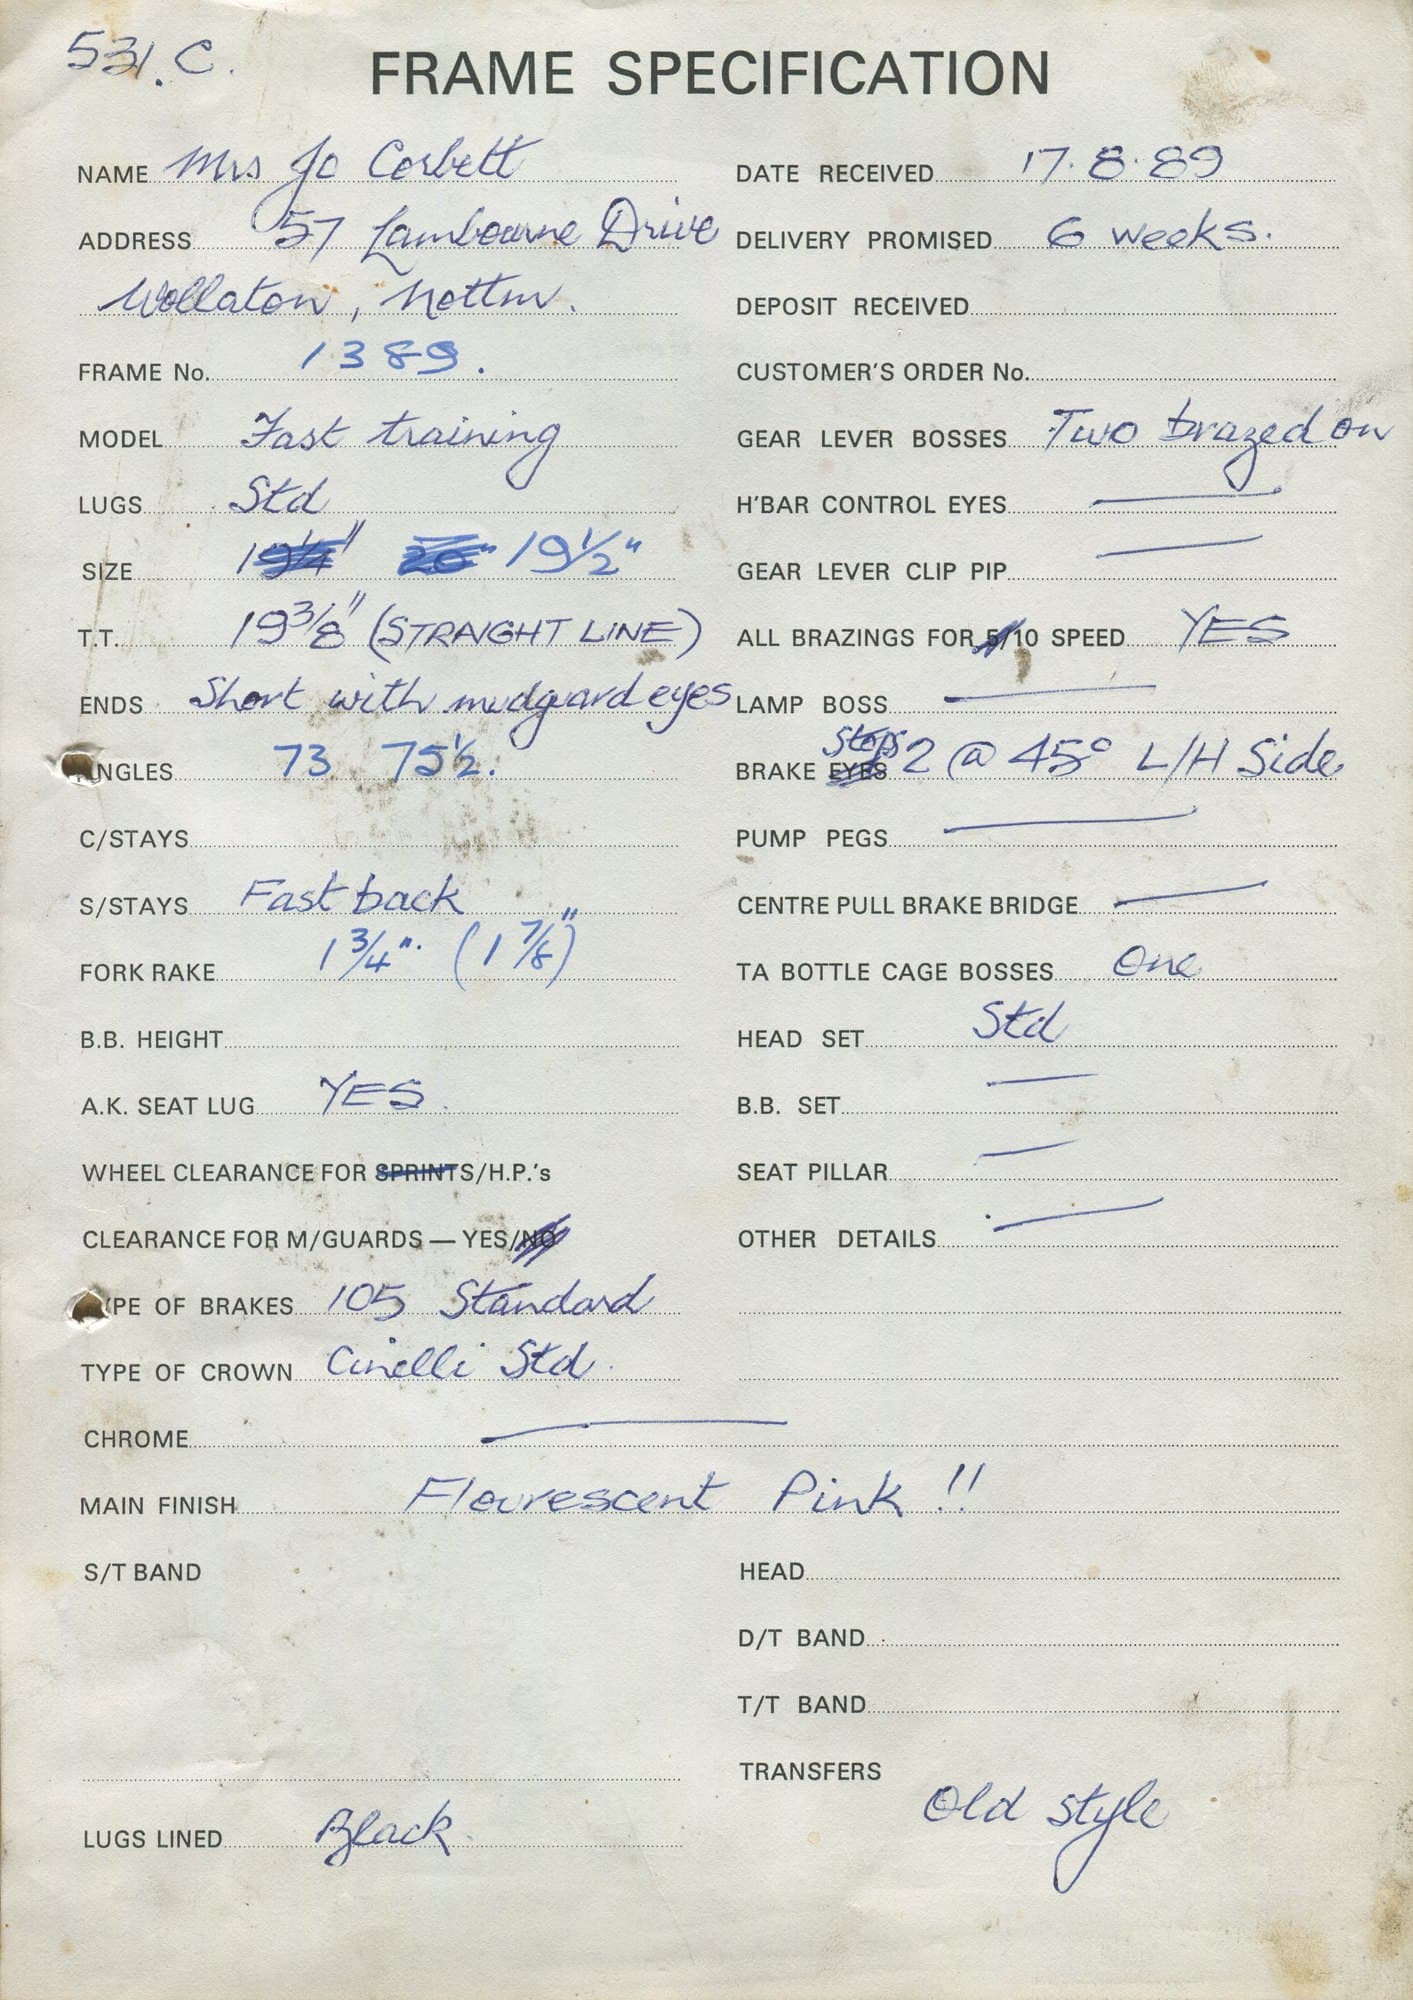 531.C.
FRAME SPECIFICATION
NAME Mrs Jo Corbett
ADDRESS 57 Lambourne Drive
Wollaton, Nottm.
FRAME No. 1389.
MODEL Fast training
LUGS Std
SIZE 19 1/4" 20" 19 1/2"
T.T. 19 3/8" (STRAIGHT LINE)
ENDS Short with mudguard eyes
ANGLES 73 75 1/2.
C/STAYS
S/STAYS Fast back
FORK RAKE 1 3/4". (1 7/8")
B.B. HEIGHT
A.K. SEAT LUG YES.
WHEEL CLEARANCE FOR SPRINTS/H.P.'s
CLEARANCE FOR M/GUARDS — YES/NO
TYPE OF BRAKES 105 Standard
TYPE OF CROWN Cinelli Std.
DATE RECEIVED 17.8.89
DELIVERY PROMISED 6 weeks.
DEPOSIT RECEIVED
CUSTOMER'S ORDER No.
GEAR LEVER BOSSES Two brazed on
H'BAR CONTROL EYES —
GEAR LEVER CLIP PIP —
ALL BRAZINGS FOR 5/10 SPEED YES
LAMP BOSS —
BRAKE EYES Stops 2 @ 45° L/H Side
PUMP PEGS —
CENTRE PULL BRAKE BRIDGE —
TA BOTTLE CAGE BOSSES One
HEAD SET Std
B.B. SET —
SEAT PILLAR —
OTHER DETAILS —
CHROME —
MAIN FINISH Flourescent Pink !!
S/T BAND
LUGS LINED Black
HEAD
D/T BAND
T/T BAND
TRANSFERS
Old style